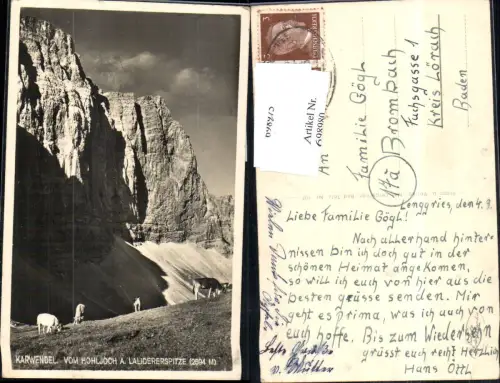 KARWENDEL. VOM HOHLJOCH A. LALIDERERSPITZE (2894 M).
3
Artikel Nr.
698980
An
Familie Gögl
Brombach
Fuchsgasse 1
Kreis Lörach
Baden
17a
Lenggries, den 4.8.
Liebe Familie Gögl!
Nach allerhand hinter-
nissen bin ich doch gut in der
schönen Heimat angekomen,
so will ich euch von hier aus die
besten grüsse senden. Mir
geht es prima, was ich auch von
euch hoffe. Bis zum Wiedersehn
grüsst euch recht Herzlich
Hans Ottl
v. Mutter